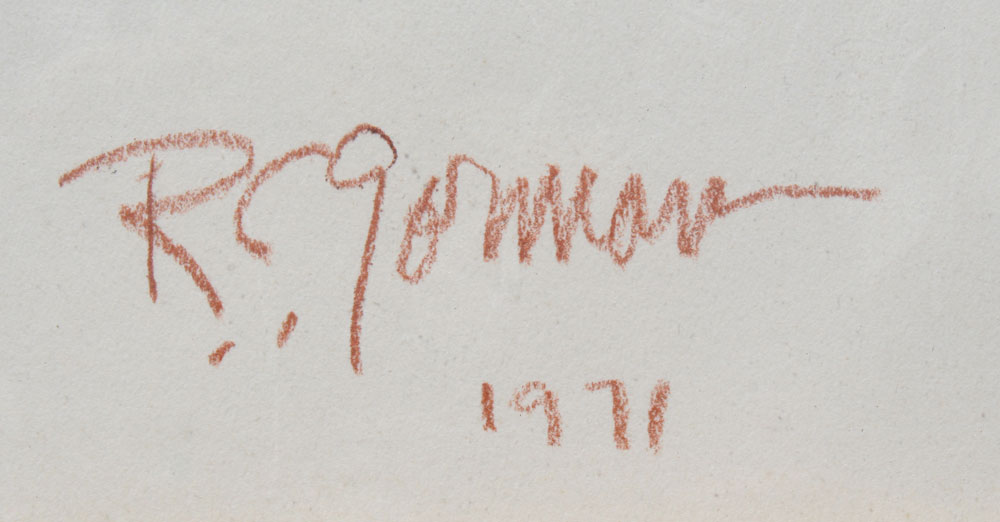 R.C. Gorman
1971